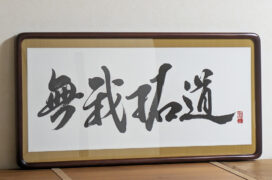 無我拓道